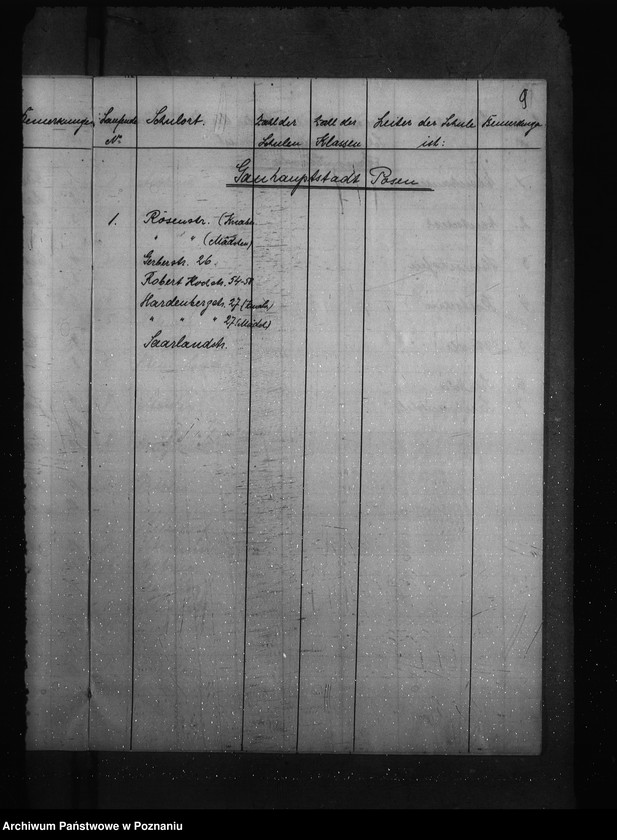 9
Bemerkungen Laufende Schulort. Zahl der Zahl der Leiter der Schule Bemerkunge
Nr. Schulen Klassen ist:
Gauhauptstadt Posen
1. Rosenstr. (Knaben
" " (Mädchen)
Gerberstr. 26.
Robert Kochstr. 54-58
Hardenbergstr. 27 (Knab.)
" " " 27 (Mädch.)
Saarlandstr.
Archiwum Państwowe w Poznaniu